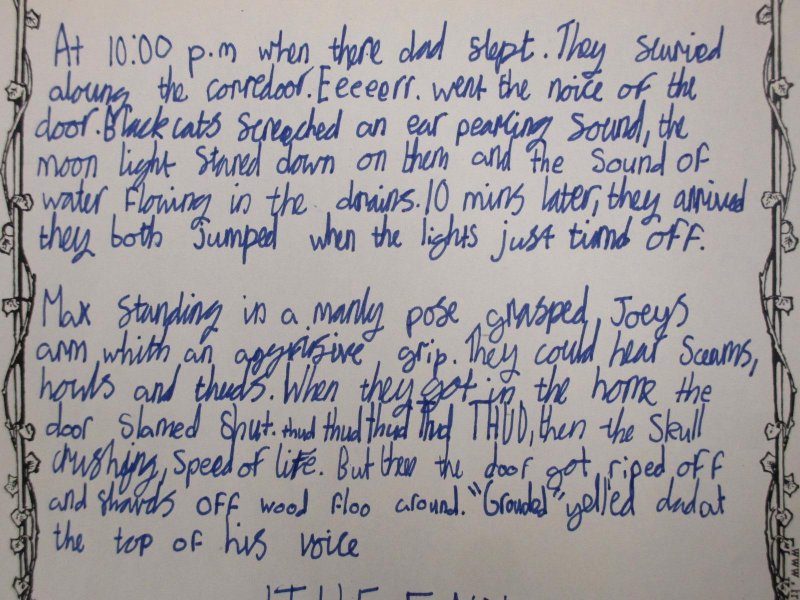 At 10:00 p.m when there dad slept. They scuried
aloung the corredoor. Eeeeerr. went the noice of the
door. Black cats screeched an ear pearcing sound, the
moon light stared down on them and the sound of
water flowing in the drains. 10 mins later, they arrived
they both jumped when the lights just turnd off.
Max standing in a manly pose grasped, Joeys
arm whith an aggrisive grip. They could hear sceams,
howls and thuds. When they got in the home the
door slamed shut. thud thud thud thud THUD, then the skull
crushing, speed of life. But then the door got riped off
and shards off wood floo around. "Grouded" yelled dad at
the top of his voice